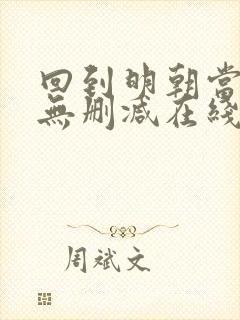 回到明朝當
無刪減在綫
周斌文